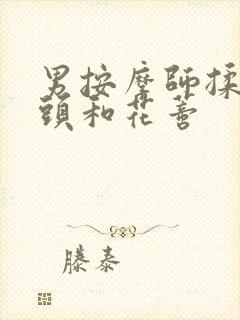 男按摩師揉
頭和花蕾
滕泰